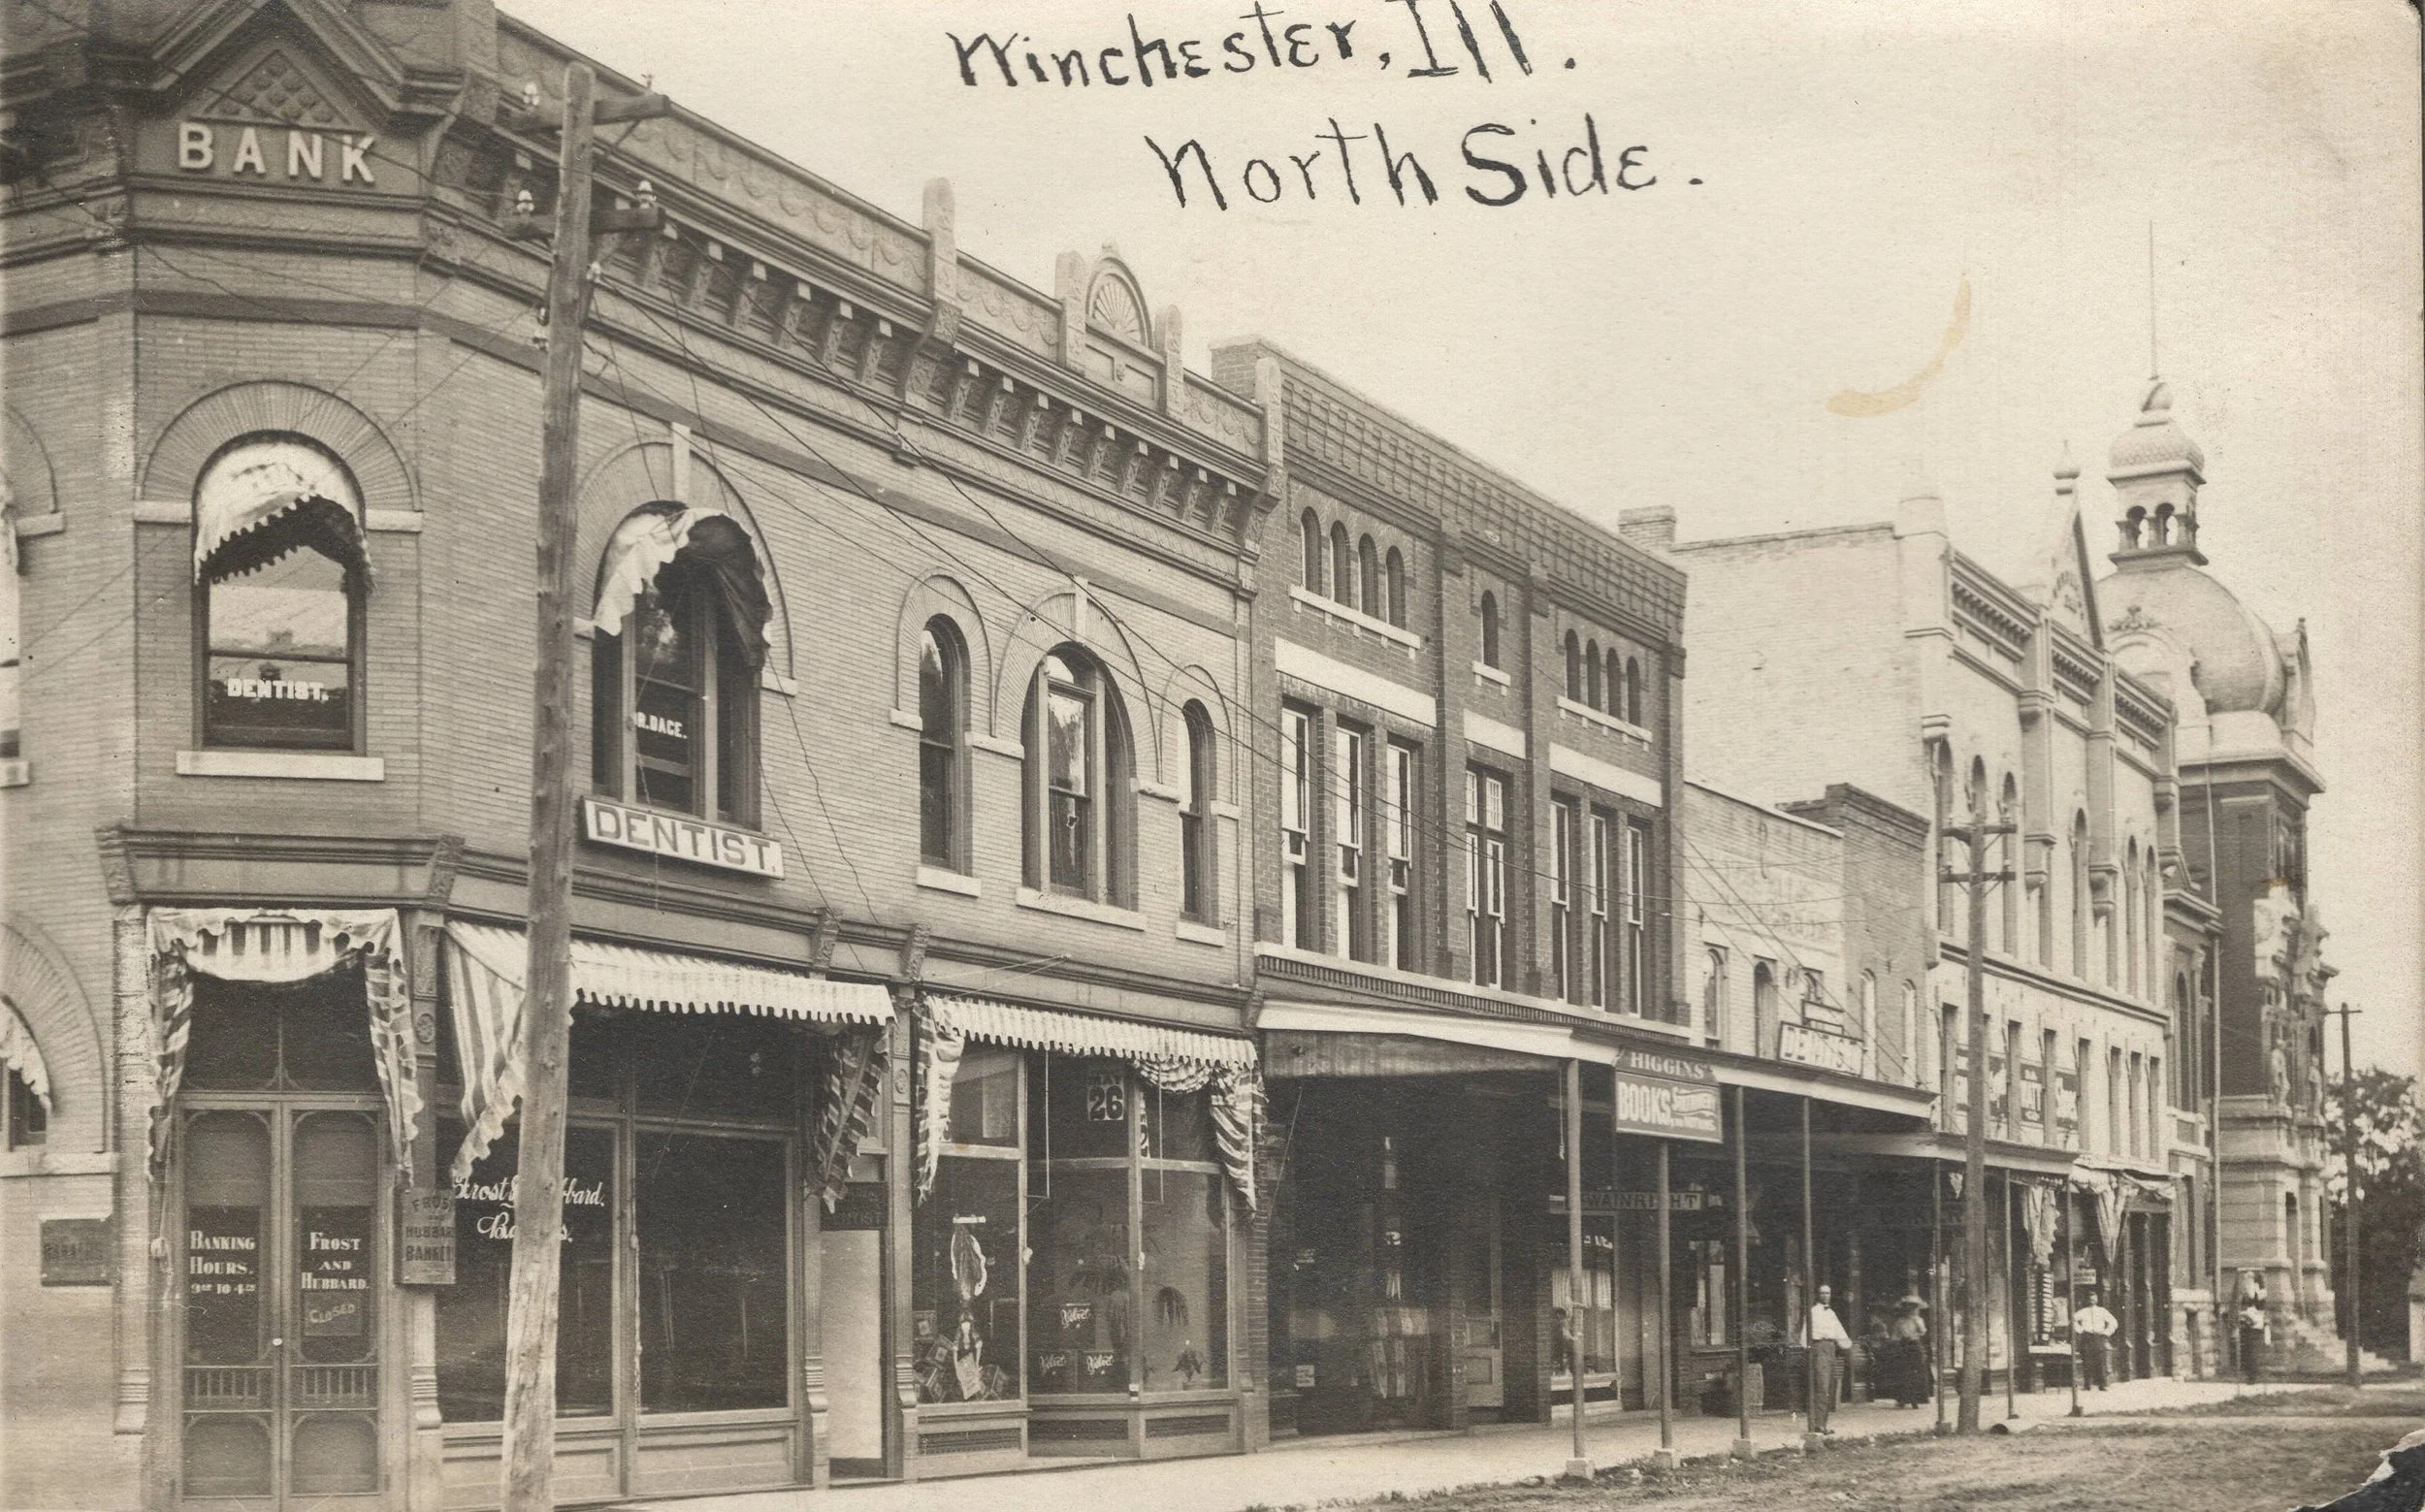 Winchester, Ill.
North Side.
BANK
DENTIST.
R. DACE.
DENTIST.
26
HIGGINS'
BOOKS
DENTIST
WAINRIGHT
Frost & Hubbard.
Bankers.
FROST
HUBBARD
BANKERS
BANKING
HOURS.
9 TO 4
FROST
AND
HUBBARD.
CLOSED
Velvet
Velvet
Velvet